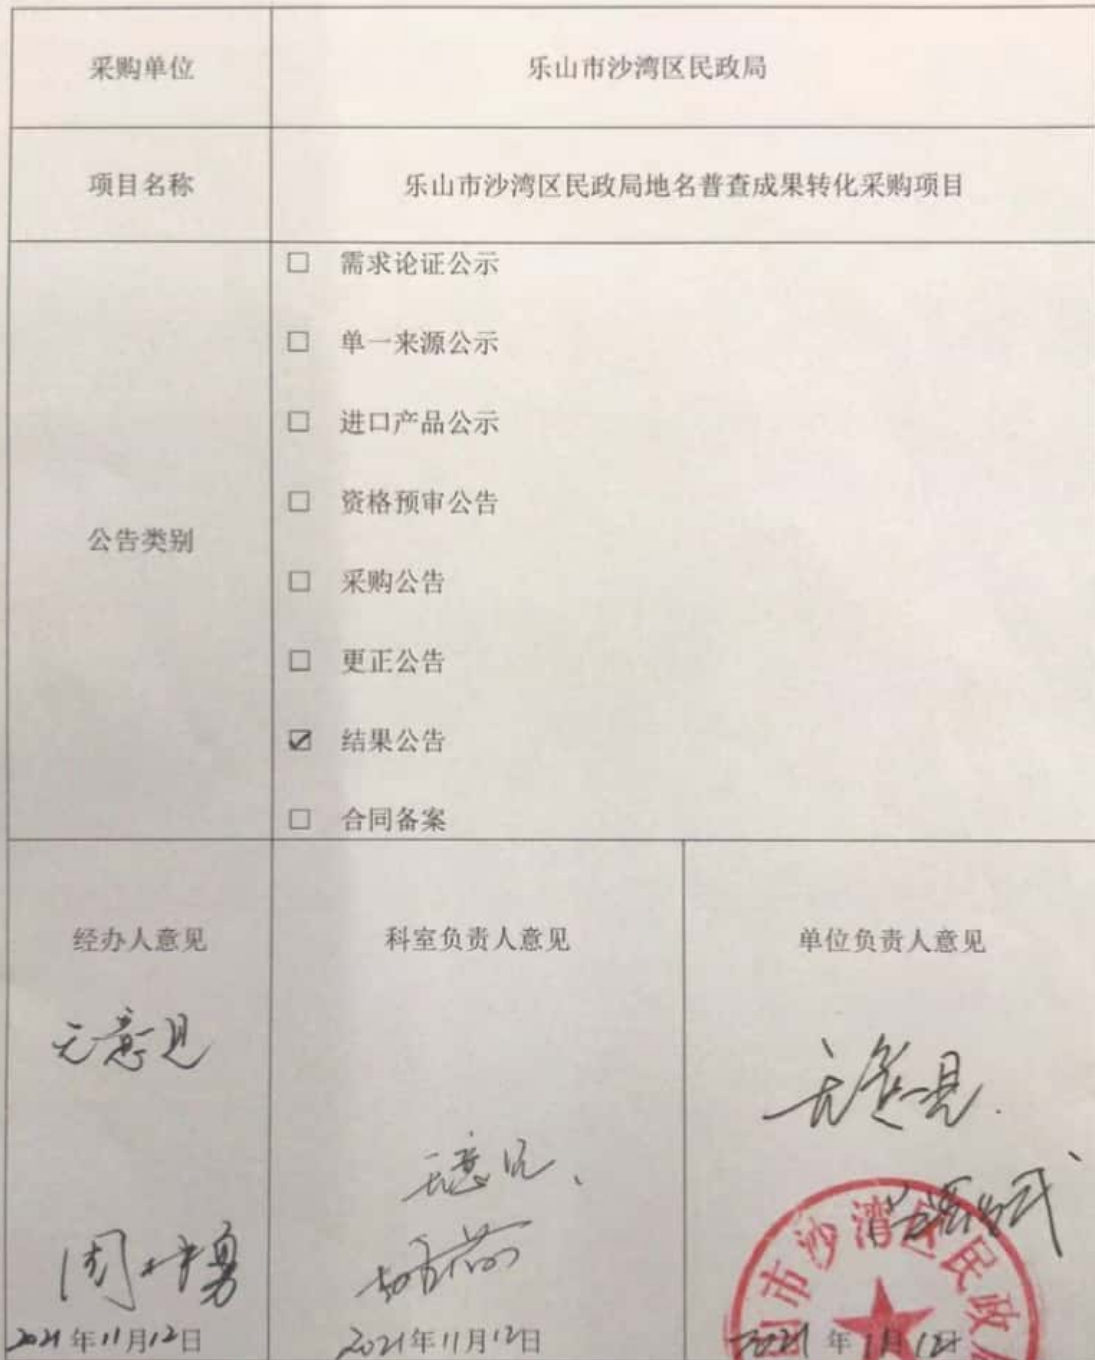 采购单位
乐山市沙湾区民政局
项目名称
乐山市沙湾区民政局地名普查成果转化采购项目
公告类别
□ 需求论证公示
□ 单一来源公示
□ 进口产品公示
□ 资格预审公告
□ 采购公告
□ 更正公告
☑ 结果公告
□ 合同备案
经办人意见
科室负责人意见
单位负责人意见
无意见
无意见.
无意见、
山市沙湾区民政
2021年11月12日
2021年11月12日
2021年11月12日